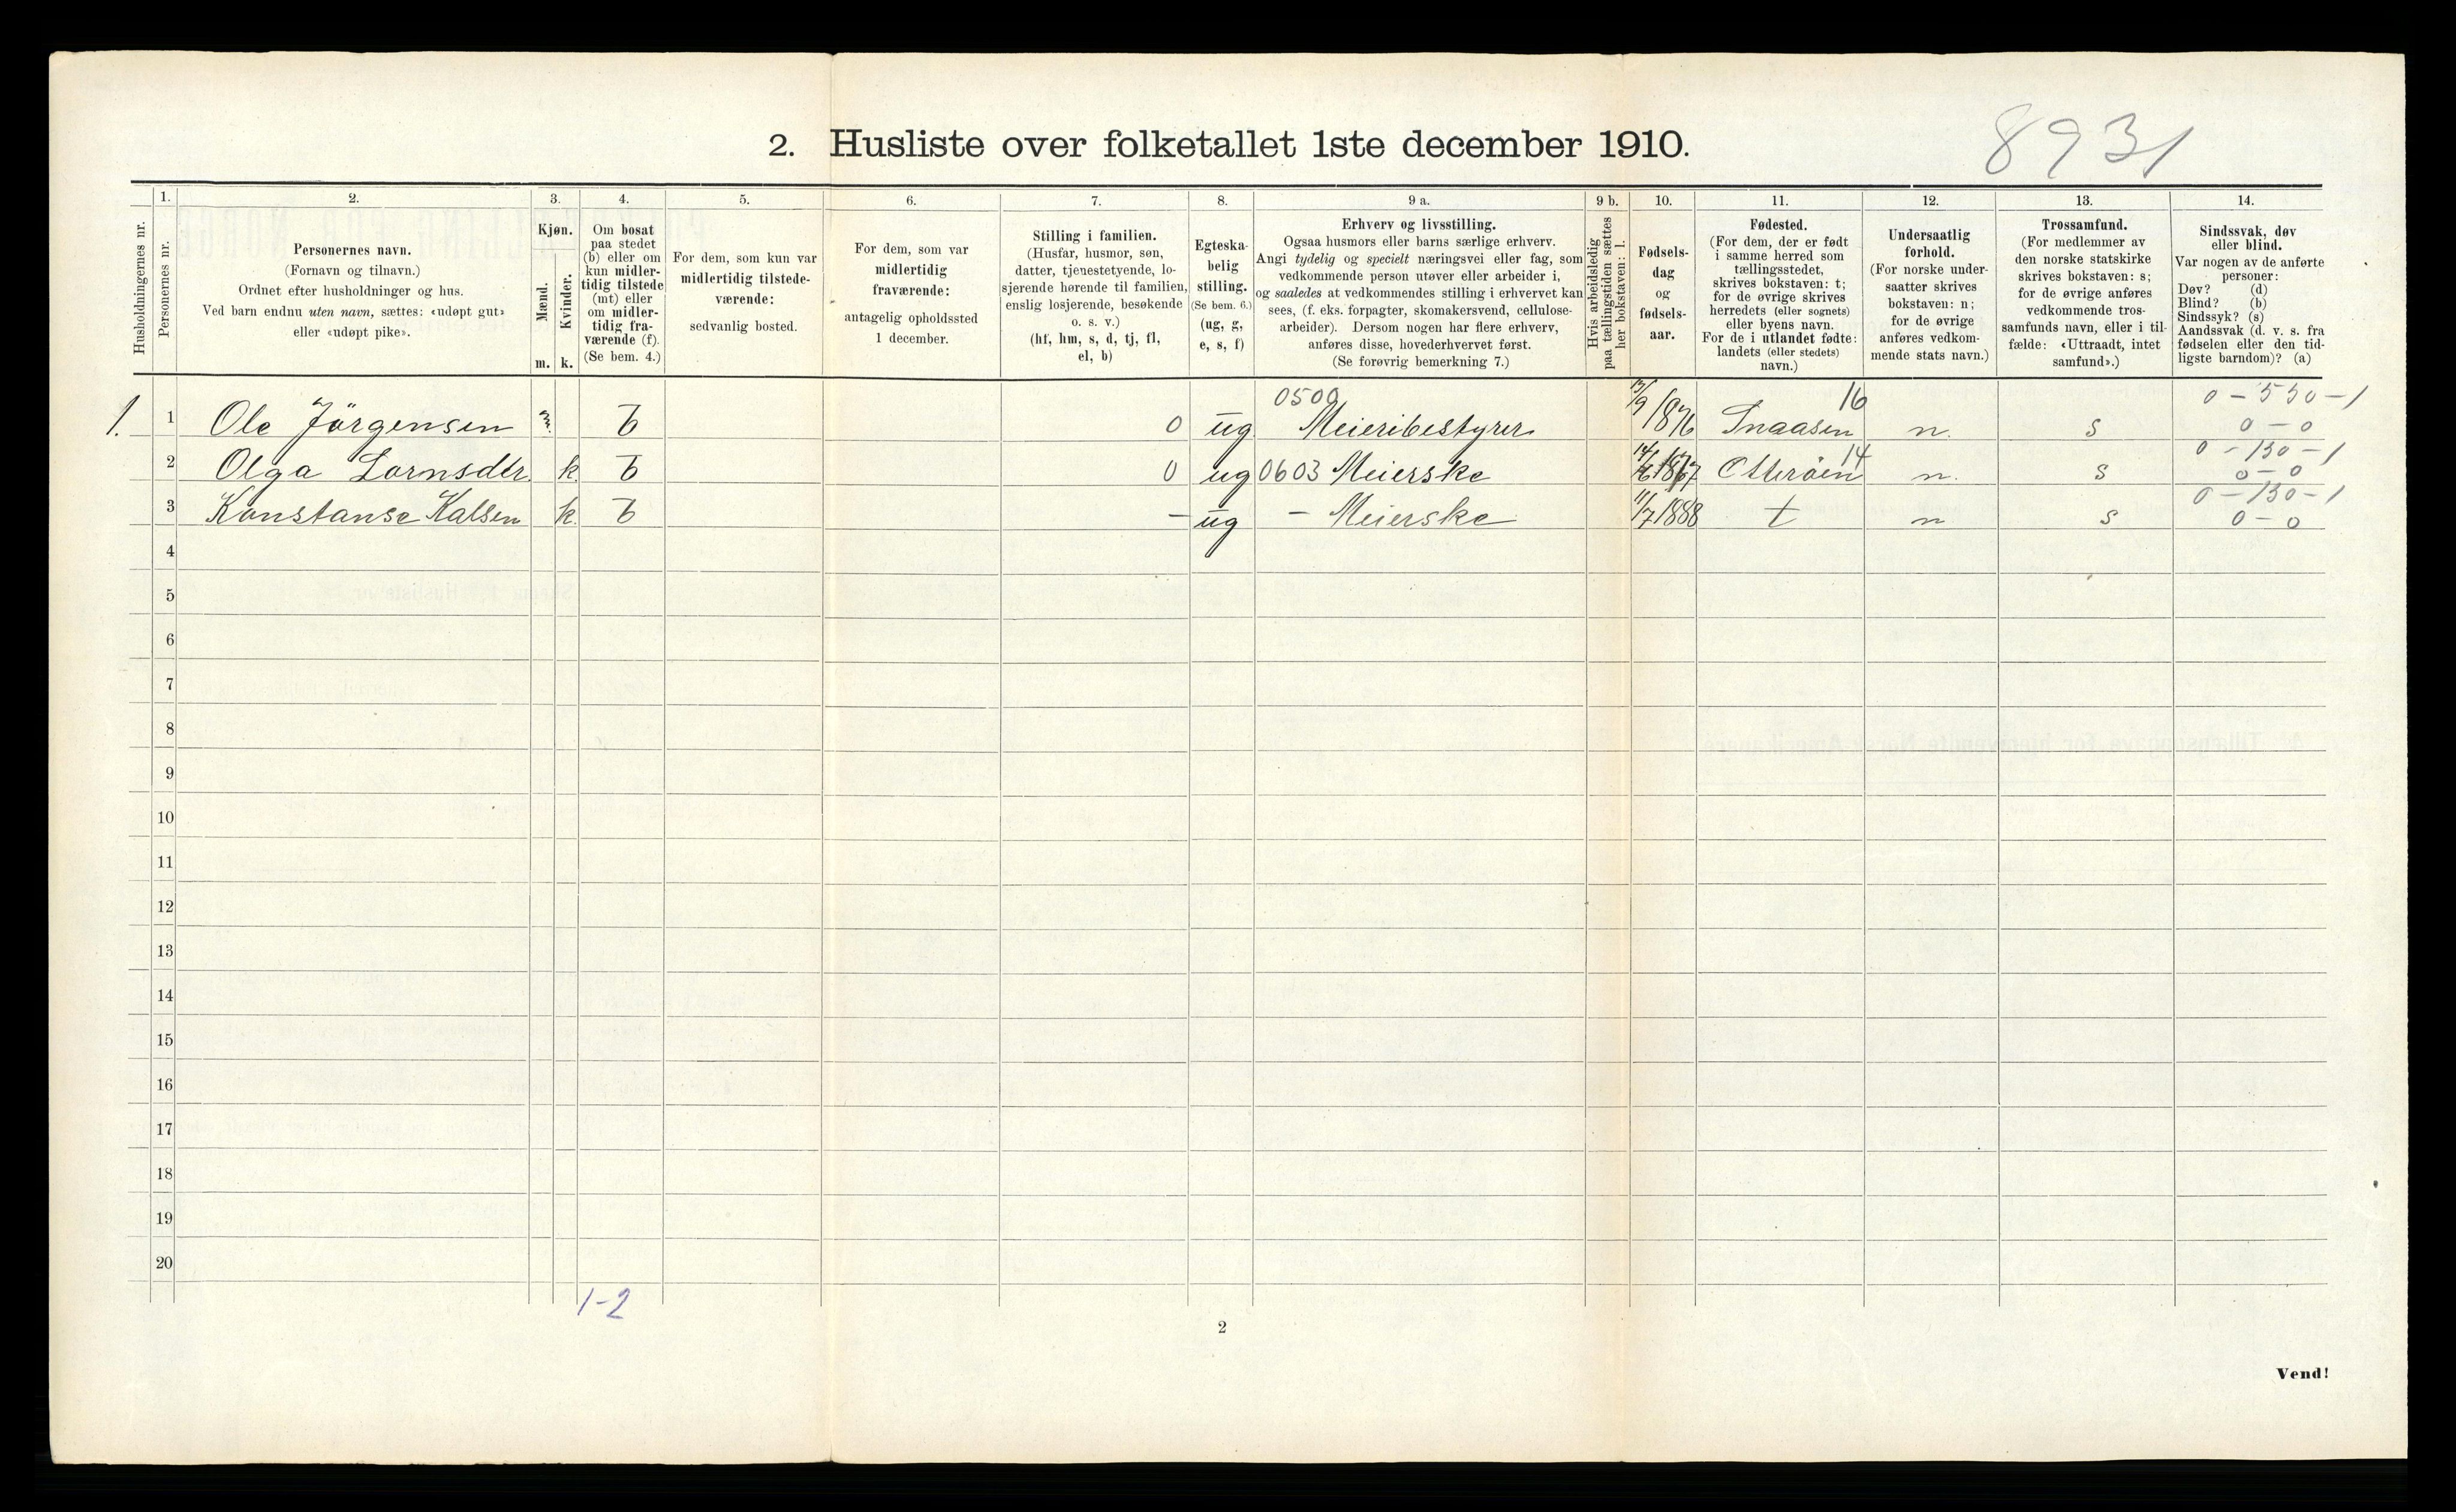 2. Husliste over folketallet 1ste december 1910.
8931
1. 2. 3. 4. 5. 6. 7. 8. 9 a. 9 b. 10. 11. 12. 13. 14.
Husholdningernes nr.
Personernes nr.
Personernes navn.
(Fornavn og tilnavn.)
Ordnet efter husholdninger og hus.
Ved barn endnu uten navn, sættes: «udøpt gut»
eller «udøpt pike».
Kjøn.
Mænd.
Kvinder.
m. k.
Om bosat
paa stedet
(b) eller om
kun midler-
tidig tilstede
(mt) eller
om midler-
tidig fra-
værende (f).
(Se bem. 4.)
For dem, som kun var
midlertidig tilstede-
værende:
sedvanlig bosted.
For dem, som var
midlertidig
fraværende:
antagelig opholdssted
1 december.
Stilling i familien.
(Husfar, husmor, søn,
datter, tjenestetyende, lo-
sjerende hørende til familien,
enslig losjerende, besøkende
o. s. v.)
(hf, hm, s, d, tj, fl,
el, b)
Egteska-
belig
stilling.
(Se bem. 6.)
(ug, g,
e, s, f)
Erhverv og livsstilling.
Ogsaa husmors eller barns særlige erhverv.
Angi tydelig og specielt næringsvei eller fag, som
vedkommende person utøver eller arbeider i,
og saaledes at vedkommendes stilling i erhvervet kan
sees, (f. eks. forpagter, skomakersvend, cellulose-
arbeider). Dersom nogen har flere erhverv,
anføres disse, hovederhvervet først.
(Se forøvrig bemerkning 7.)
Hvis arbeidsledig
paa tællingstiden sættes
her bokstaven: l.
Fødsels-
dag
og
fødsels-
aar.
Fødested.
(For dem, der er født
i samme herred som
tællingsstedet,
skrives bokstaven: t;
for de øvrige skrives
herredets (eller sognets)
eller byens navn.
For de i utlandet fødte:
landets (eller stedets)
navn.)
Undersaatlig
forhold.
(For norske under-
saatter skrives
bokstaven: n;
for de øvrige
anføres vedkom-
mende stats navn.)
Trossamfund.
(For medlemmer av
den norske statskirke
skrives bokstaven: s;
for de øvrige anføres
vedkommende tros-
samfunds navn, eller i til-
fælde: «Uttraadt, intet
samfund».)
Sindssvak, døv
eller blind.
Var nogen av de anførte
personer:
Døv? (d)
Blind? (b)
Sindssyk? (s)
Aandssvak (d. v. s. fra
fødselen eller den tid-
ligste barndom)? (a)
0500 16 0-530-1
1. 1 Ole Jörgensen m. b 0 ug Meieribestyrer 13/9 1876 Snaasen n. s 0-0
14 0-130-1
2 Olga Lornsdtr. k. b 0 ug 0603 Meierske Otterøen n. s 0-0
0-130-1
3 Konstanse Kalsen k. b - ug - Meierske 11/7 1888 t n s 0-0
4
5
6
7
8
9
10
11
12
13
14
15
16
17
18
19
20
1-2
2
Vend!